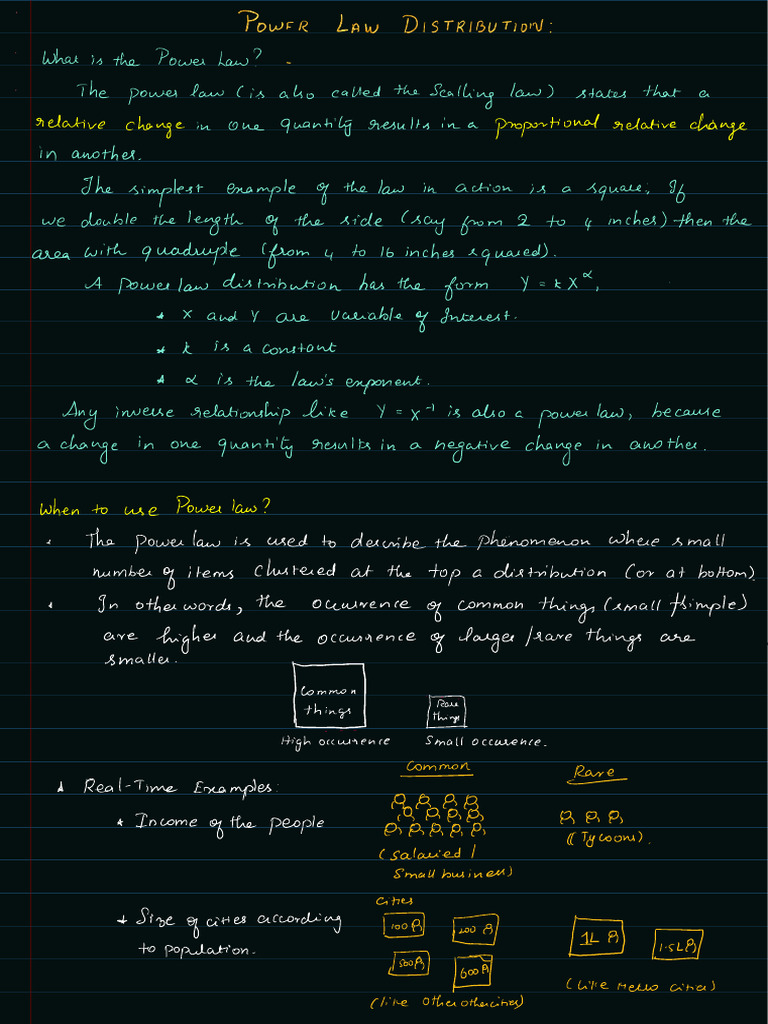 POWER LAW DISTRIBUTION:
What is the Power Law? -
The power law (is also called the Scalling law) states that a
relative change in one quantity results in a proportional relative change
in another.
The simplest example of the law in action is a square; If
we double the length of the side (say from 2 to 4 inches) then the
area with quadruple (from 4 to 16 inches squared).
A power law distribution has the form Y = k X^α,
* X and Y are variable of Interest.
* k is a constant
* α is the law's exponent.
Any inverse relationship like Y = X^-1 is also a power law, because
a change in one quantity results in a negative change in another.
When to use Power law?
• The power law is used to describe the phenomenon where small
number of items clustered at the top a distribution (or at bottom)
• In other words, the occurrence of common things (small /simple)
are higher and the occurrence of larger /rare things are
smaller.
Common
things
Rare
things
High occurence Small occurence.
Common Rare
* Real-Time Examples:
* Income of the people
(Tycoons).
(Salaried /
Small business)
Cities
* Size of cities according
to population.
100 200 1L 1.5L
500 600
(like other othercities) (like Metro cities)